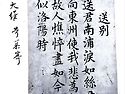 送別
送君南浦淚如絲
向東州使我悲為
故人憔悴盡如今
似洛陽時
大維